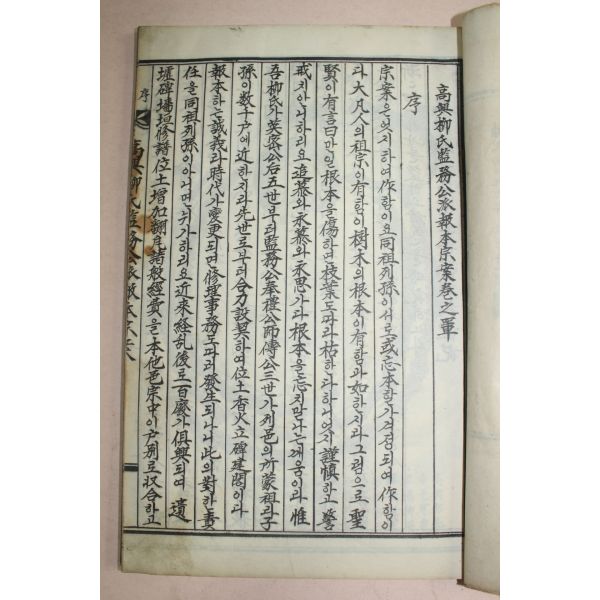 高興柳氏監務公派報本宗案卷之單
序
宗案은엇지하여作함이요同祖列孫이서로或忘本할가걱정되여作함이
라大凡人의祖宗이有함이樹木의根本이有함과如한지라그럼으로聖
賢이有言曰만일根本을傷하면枝葉도따라枯하다하니엇지謹慎하고警
戒치아니하리요追慕와永慕와永思가다根本을忘치말나는깨움이라惟
吾柳氏가英密公后五世부터監務公奉禮公師傳公三世가列邑의所蒙祖라子
孫이数千户에近하지라先世로부터合力設契하여位土香火立碑建閣이라
報本하는誠義라時代가変更되며修理事務도따러發生되나니此의對한責
任을同祖列孫이아니면뉘가하리요近來経乱後로百廢가俱興되여遺
壇碑墻垣修譜位土增加翻瓦諸般經費을本他邑宗中이户别로収合하고
序
高興柳氏監務公派報本宗案